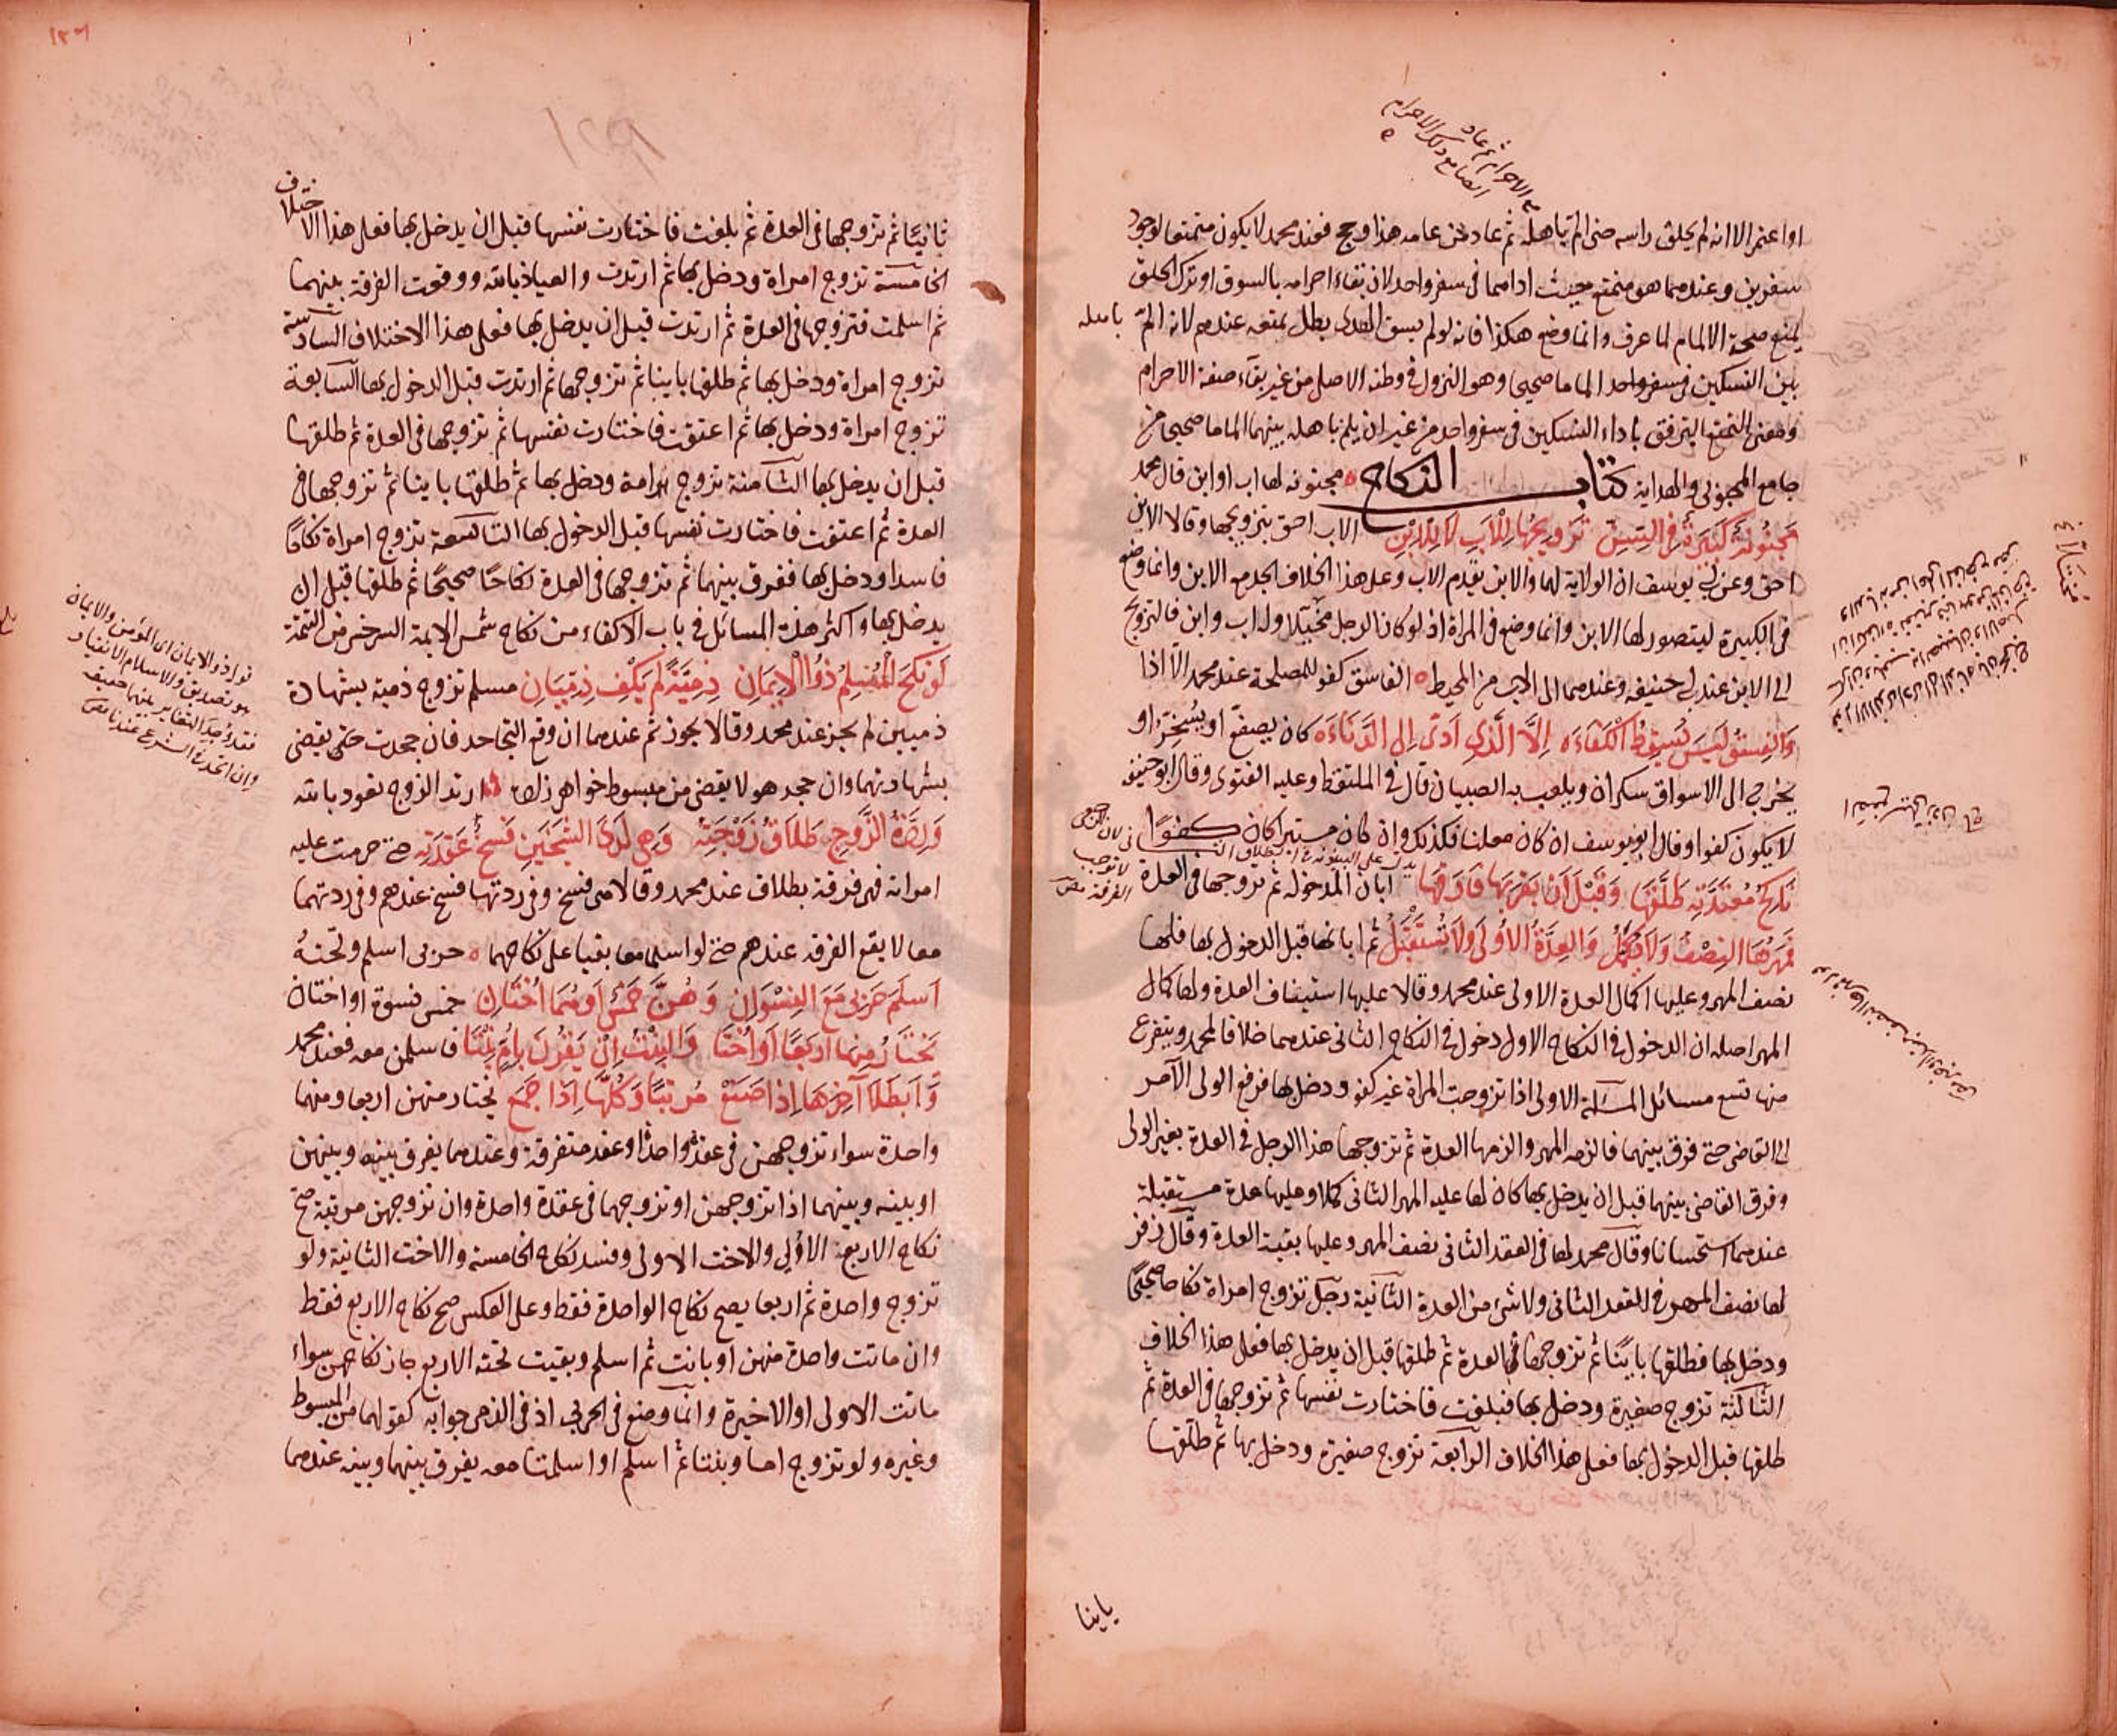 اواعتمر الا انه لم يحلق راسه حتى الم باهله ثم عاد من عامه هذا وحج فعند محمد لا يكون متمتعا لوجود
سفرين وعندهما هو متمتع حيث اداهما فى سفر واحد لان بقاء احرامه بالسوق او ترك الحلق
يمنع صحة الالمام لما عرف وانما وضع هكذا فانه لو لم يسق الهدى بطل تمتعه عندهم لانه الم باهله
بين النسكين فى سفر واحد الماما صحيحا وهو النزول فى وطنه الاصلى من غير بقاء صفة الاحرام
ومعنى التمتع الترفق باداء النسكين فى سفر واحد من غير ان يلم باهله بينهما الماما صحيحا من
جامع المحبوبى والهداية كتاب النكاح مجنونة لها اب او ابن قال محمد
مجنونة كبيرة فى السن تزويجها للاب لا للابن الاب احق بتزويجها وقالا الابن
احق وعن ابى يوسف ان الولاية لهما والابن يقدم الاب وعلى هذا الخلاف الجد مع الابن وانما وضع
فى الكبيرة ليتصور لها الابن وانما وضع فى المراة اذ لو كان الرجل مختلا وله اب وابن فالتزويج
الى الابن عند ابى حنيفه وعندهما الى الاب من المحيط الفاسق كفو للصالحة عند محمد الا اذا
والفسق ليس يسقط الكفاءه الا الذى ادى الى الدناءه كان يصفع او يسخر او
يخرج الى الاسواق سكران ويلعب به الصبيان قال فى الملتقط وعليه الفتوى وقال ابو حنيفه
لا يكون كفوا وقال ابو يوسف ان كان معلنا فكذلك وان كان مستترا كان كفوا
ناكح معتدته طلقها وقبل ان يقربها فارقها ابان المدخوله ثم تزوجها فى العدة
فمهرها النصف ولا يكمل والعدة الاولى ولا تستقبل ثم ابانها قبل الدخول بها فلها
نصف المهر وعليها اكمال العدة الاولى عند محمد وقالا عليها استيناف العدة ولها كمال
المهر اصله ان الدخول فى النكاح الاول دخول فى النكاح الثانى عندهما خلافا لمحمد ويتفرع
منها تسع مسائل المسئلة الاولى اذا تزوجت المراة غير كفو ودخل بها فرفع الولى الامر
الى القاضى حتى فرق بينهما فالزمه المهر والزمها العدة ثم تزوجها هذا الرجل فى العدة بغير الولى
وفرق القاضى بينهما قبل ان يدخل بها كان لها عليه المهر الثانى كملا وعليها عدة مستقبلة
عندهما استحسانا وقال محمد لها فى العقد الثانى نصف المهر وعليها بقية العدة وقال زفر
لها نصف المهر فى العقد الثانى ولا شئ من العدة الثانية رجل تزوج امراة نكاحا صحيحا
ودخل بها فطلقها باينا ثم تزوجها فى العدة ثم طلقها قبل ان يدخل بها فعلى هذا الخلاف
الثالثة تزوج صغيرة ودخل بها فبلغت فاختارت نفسها ثم تزوجها فى العدة ثم
طلقها قبل الدخول بها فعلى هذا الخلاف الرابعة تزوج صغيرة ودخل بها ثم طلقها
باينا
ثانيا ثم تزوجها فى العدة ثم بلغت فاختارت نفسها قبل ان يدخل بها فعلى هذا الاختلاف
الخامسة تزوج امراة ودخل بها ثم ارتدت والعياذ بالله ووقعت الفرقة بينهما
ثم اسلمت فتزوجها فى العدة ثم ارتدت قبل ان يدخل بها فعلى هذا الاختلاف السادسة
تزوج امراة ودخل بها ثم طلقها باينا ثم تزوجها ثم ارتدت قبل الدخول بها السابعة
تزوج امراة ودخل بها ثم اعتقت فاختارت نفسها ثم تزوجها فى العدة ثم طلقها
قبل ان يدخل بها الثامنة تزوج امة ودخل بها ثم طلقها باينا ثم تزوجها فى
العدة ثم اعتقت فاختارت نفسها قبل الدخول بها التاسعة تزوج امراة نكاحا
فاسدا ودخل بها ففرق بينهما ثم تزوجها فى العدة نكاحا صحيحا ثم طلقها قبل ان
يدخل بها واكثر هذه المسائل فى باب الاكفاء من نكاح شمس الايمة السرخسى من التتمة
لو نكح المسلم ذو الايمان ذمية لم يكف ذميان مسلم تزوج ذمية بشهادة
ذميين لم يجز عند محمد وقالا يجوز ثم عندهما ان وقع التجاحد فان جحدت حتى يقضى
بشهادتهما وان جحد هو لا يقضى من مبسوط خواهر زاده ارتد الزوج نعوذ بالله
وردة الزوج طلاق زوجته وهى لدى الشيخين فسخ عقدته حتى حرمت عليه
امراته فهى فرقة بطلاق عند محمد وقالا هى فسخ وفى ردتها فسخ عندهم وفى ردتهما
معا لا يقع الفرقه عندهم حتى لو اسلما معا بقيا على نكاحهما حربى اسلم وتحته
اسلم حربى مع النسوان وهن خمس او هما اختان خمس نسوة او اختان
يختار منها اربعا او اختا والبنت ان يقرن بام بتا فاسلمن معه فعند محمد
وابطلا آخرها اذا صنع مرتبا وكلها اذا جمع يختار منهن اربعا ومنهما
واحدة سواء تزوجهن فى عقد واحد او عقد متفرقة وعندهما يفرق بينه وبينهن
او بينه وبينهما اذا تزوجهن او تزوجهما فى عقدة واحدة وان تزوجهن مرتبة صح
نكاح الاربع الاولى والاخت الاولى وفسد نكاح الخامسة والاخت الثانية ولو
تزوج واحدة ثم اربعا يصح نكاح الواحدة فقط وعلى العكس صح نكاح الاربع فقط
وان ماتت واحدة منهن او بانت ثم اسلم وبقيت تحته الاربع جاز نكاحهن سواء
ماتت الاولى او الاخيرة وانما وضع فى الحربى اذ فى الذمى جوابه كقولهما من المبسوط
وغيره ولو تزوج اما وبنتا ثم اسلم او اسلمتا معه يفرق بينهما وبينه عندهما
قوله ذو الايمان اى المؤمن والايمان
هو تصديق والاسلام الانقياد
فقد وجد التغاير بينهما حقيقه
وان اتحد فى الشرع عندنا